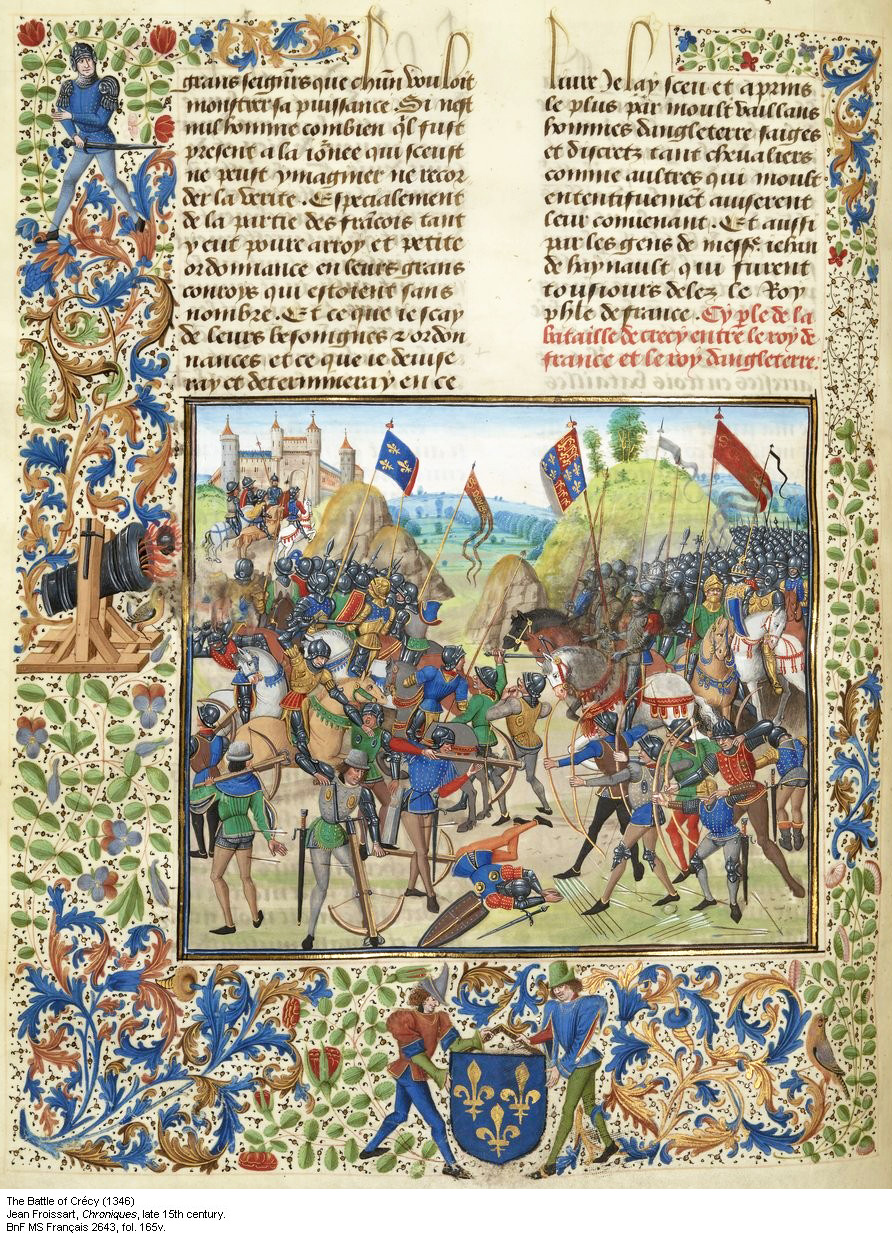 grans seign̄rs que ch̄un vouloit
monstrer sa puissance. Si nest
nul homme combien q̄l fust
present a la io᷑nee qui sceust
ne peust ymaginer ne recor
der la verite. Especialement
de la partie des frācois tant
y eut poure arroy et petite
ordonnance en leurs grans
conroys qui estoient sans
nombre. Et ce que ie scay
de leurs besoingnes ⁊ ordon
nances et ce que ie deuise
ray et determineray en ce
liure Je lay sceu et aprins
le plus par moult vaillans
hommes dangleterre saiges
et discretz tant cheualiers
comme aultres qui moult
ententifuemēt auiserent
leur conuenant. Et aussi
par les gens de messē. iehan
de haynault qui furent
tousiours delez le Roy
ph̄le de france. Cy p̄le de la
bataille de crecy entre le roy de
france et le roy dangleterre.
The Battle of Crécy (1346)
Jean Froissart, Chroniques, late 15th century.
BnF MS Français 2643, fol. 165v.